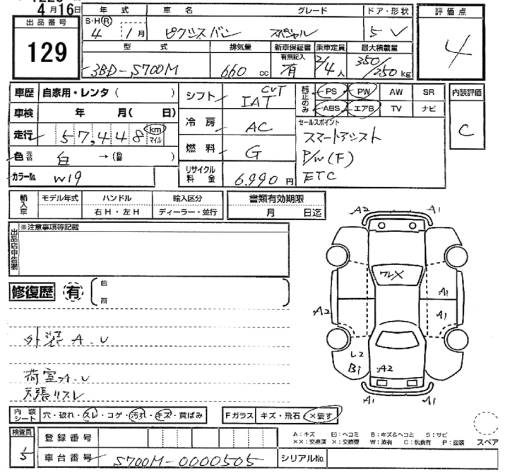 4月16日
出品番号
129
年式 車名 グレード ドア・形状
S・H・R 4年 1月 ピクシスバン スペシャル 5 V
評価点
4
型式 排気量 新車保証書 乗車定員 最大積載量
3BD-S700M 660 cc 有無記入 有 2/4人 350/250kg
車歴 自家用・レンタ( )
車検 年 月( 日)
走行 57,448 km マイル
色 白 →( )
カラーNo. W19
シフト CVT IAT
冷房 AC
燃料 G
リサイクル料金 6,990円
純正のみ PS PW AW SR
ABS エアB TV ナビ
内装評価
C
セールスポイント
スマートアシスト
P/W(F)
ETC
輸入車 モデル年式 ハンドル 輸入区分
右H・左H ディーラー・並行
書類有効期限
月 日迄
※注意事項等記載
出品店申告欄
修復歴 有 前 後
外装A.U
荷室A.U
天張リスレ
A2 A1
グレX
A2 A1
A1
L2
B1 A2
A1 A1
内装シート 穴・破れ・スレ・コゲ・汚れ・キズ・黄ばみ
Fガラス キズ・飛石・X要す
スペア
検査員 5
登録番号
車台番号 S700M-0000505
シリアルNo.
A:キズ U:ヘコミ B:キズ&ヘコミ S:サビ